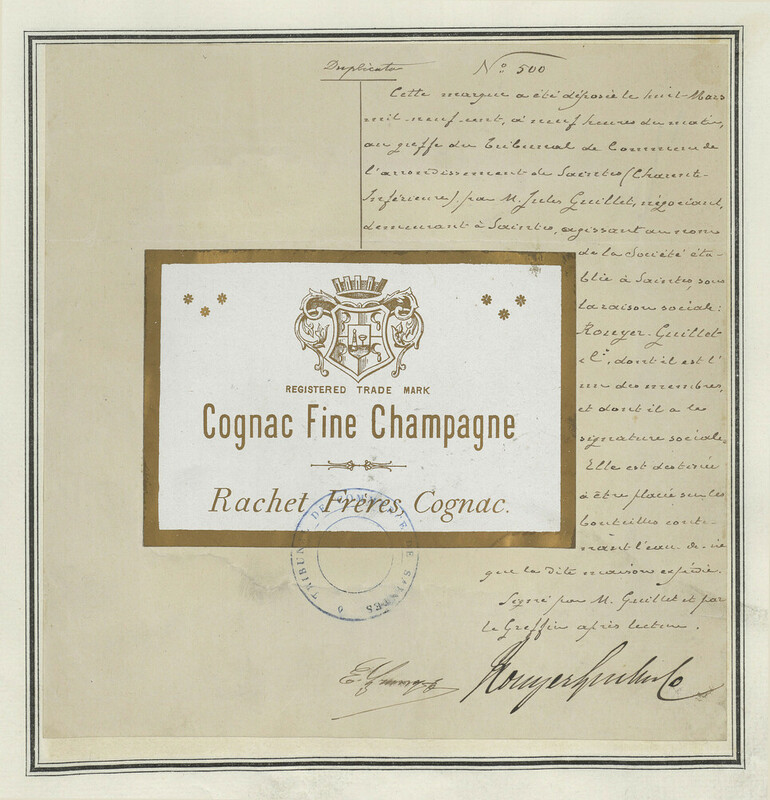 Duplicata
Nº 500
Cette marque a été déposée le huit Mars
mil neuf cent, à neuf heures du matin,
au greffe du Tribunal de Commerce de
l'arrondissement de Saintes (Charente-
Inférieure), par M. Jules Guillet, négociant,
demeurant à Saintes, agissant au nom
de la Société éta-
blie à Saintes, sous
la raison sociale:
Rouyer-Guillet
et Cie, dont il est l'
un des membres,
et dont il a la
signature sociale.
Elle est destinée
à être placée sur les
bouteilles conte-
nant l'eau-de-vie
que la dite maison expédie.
Signé par M. Guillet et par
le Greffier après lecture.
REGISTERED TRADE MARK
Cognac Fine Champagne
Rachet Frères, Cognac.
TRIBUNAL DE COMMERCE DE SAINTES
Rouyer Guillet & Co